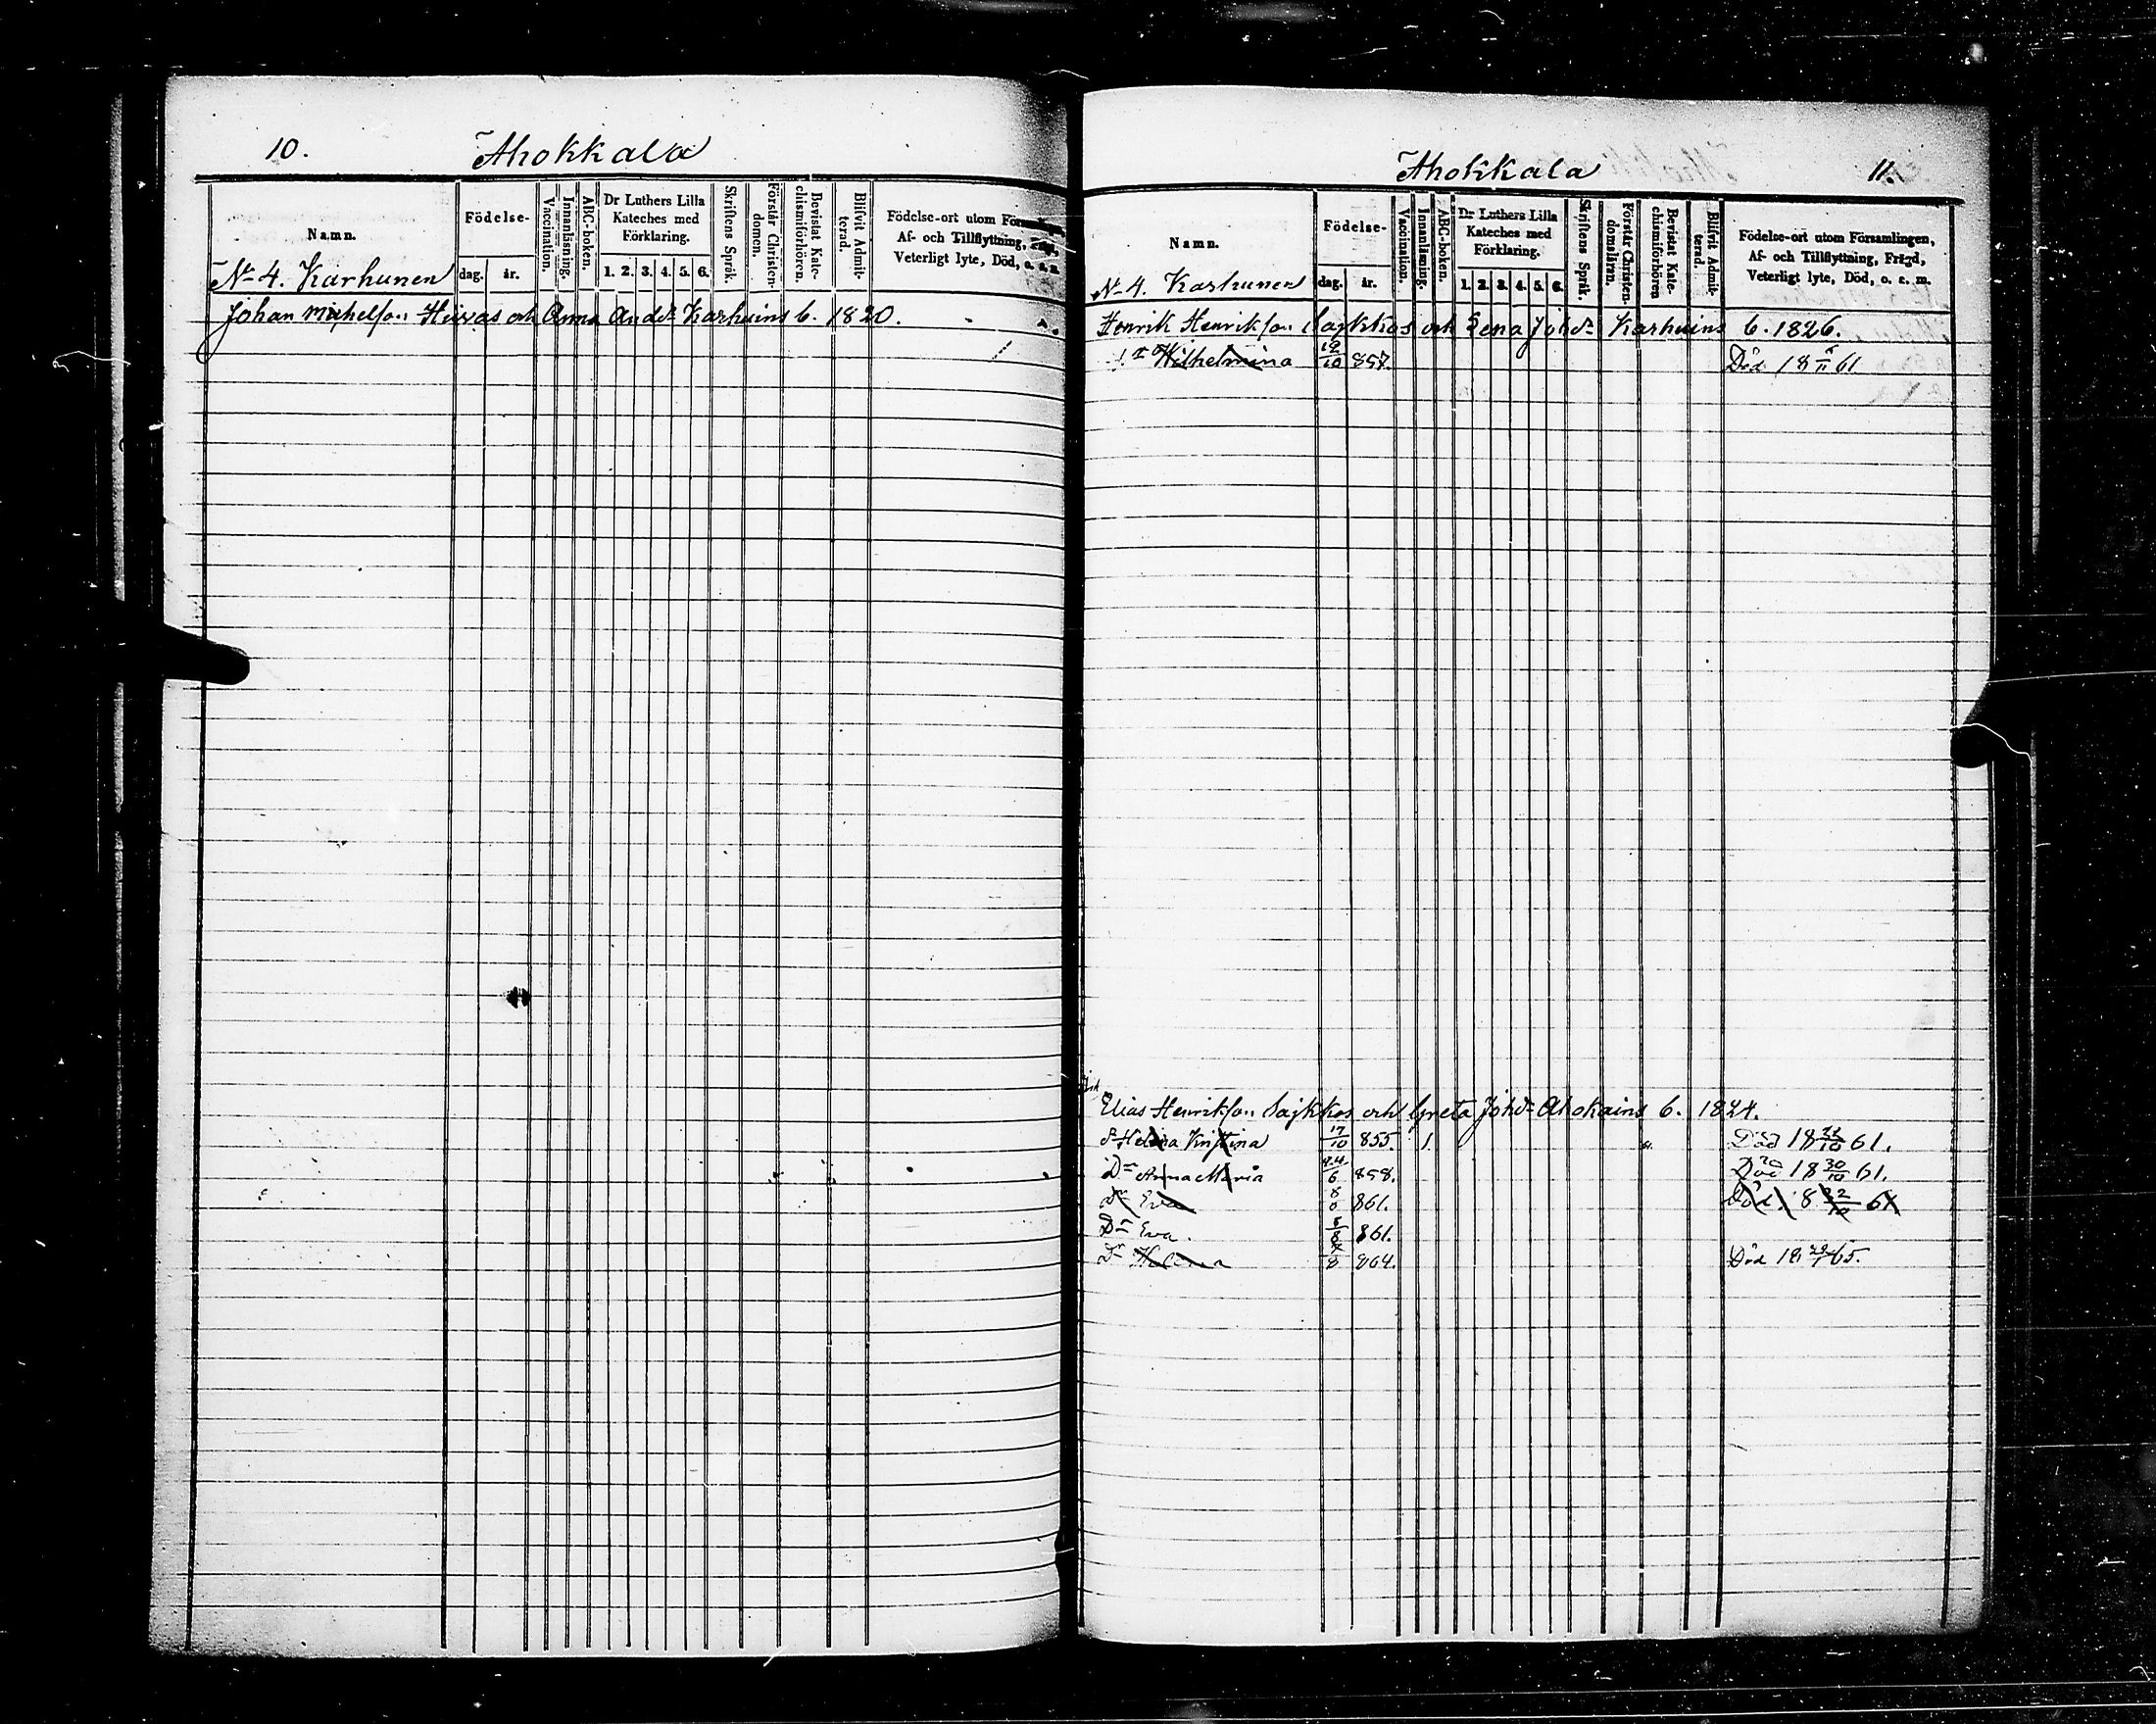 10.
Ahokkala
Namn.
Födelse-
dag.
år.
Vaccination.
Innanläsning.
ABC-boken.
Dr Luthers Lilla
Kateches med
Förklaring.
1. 2. 3. 4. 5. 6.
Skriftens Språk.
Förstår Christen-
domen.
Bevistat Kate-
chismiförhören.
Blifvit Admit-
terad.
Födelse-ort utom
Af- och Tillflyttning,
Veterligt lyte, Död, o. s. v.
No 4. Karhunen
Johan Michelson och Anna Andsdr Karhuins b. 1820.
Ahokkala
11.
Namn.
Födelse-
dag.
år.
Vaccination.
Innanläsning.
ABC-boken.
Dr Luthers Lilla
Kateches med
Förklaring.
1. 2. 3. 4. 5. 6.
Skriftens Språk.
Förstår Christen-
domsläran.
Bevistat Kate-
chismiförhören
Blifvit Admit-
terad.
Födelse-ort utom Församlingen,
Af- och Tillflyttning, Frägd,
Veterligt lyte, Död, o. s. m.
No 4. Karhunen
Henrik Henrikson Sajkkos och Lena Johdr Karhuins b. 1826.
Wilhelmina 19/10 857. Död 18 6/11 61
Elias Henrikson Sajkkos och Greta Johdr Ahokains b. 1824.
Helena Kristina 17/10 855. 1. 61. Död 18 /10 61.
Dr Anna Maria 24/6 858. Död 18 30/10 61.
Dr Eva 8/8 861. Död 18 22/10 61
Dr Eva. 8/8 861.
Dr Helena /8 864. Död 18 65.